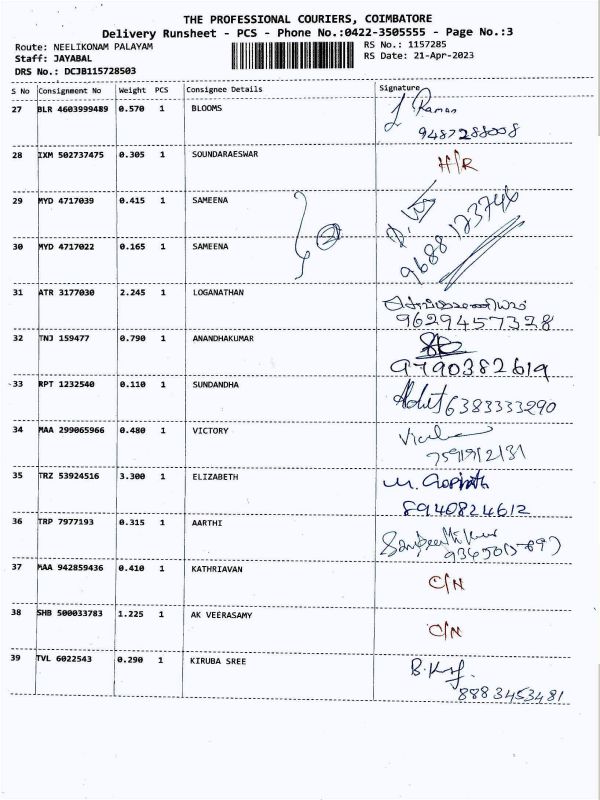 THE PROFESSIONAL COURIERS, COIMBATORE
Delivery Runsheet - PCS - Phone No.:0422-3505555 - Page No.:3
Route: NEELIKONAM PALAYAM RS No.: 1157285
Staff: JAYABAL RS Date: 21-Apr-2023
DRS No.: DCJB115728503
S No Consignment No Weight PCS Consignee Details Signature
27 BLR 4603999489 0.570 1 BLOOMS Raman
9487288008
28 IXM 502737475 0.305 1 SOUNDARAESWAR H/R
29 MYD 4717039 0.415 1 SAMEENA
30 MYD 4717022 0.165 1 SAMEENA 2 9688123746
31 ATR 3177030 2.245 1 LOGANATHAN
9629457328
32 TNJ 159477 0.790 1 ANANDHAKUMAR
9790382619
33 RPT 1232540 0.110 1 SUNDANDHA 6383333290
34 MAA 299065966 0.480 1 VICTORY
7591912131
35 TRZ 53924516 3.300 1 ELIZABETH M. Gopinath
8940824612
36 TRP 7977193 0.315 1 AARTHI
37 MAA 942859436 0.410 1 KATHRIAVAN C/N
38 SHB 500033783 1.225 1 AK VEERASAMY C/N
39 TVL 6022543 0.290 1 KIRUBA SREE
8883453481